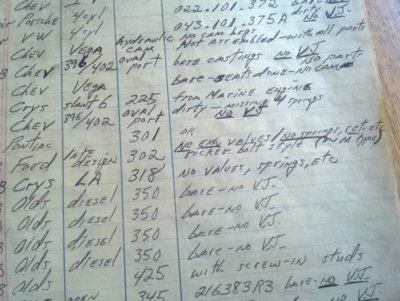 022.101.372
Porsche 4cyl 043.101.375A dirty NO VJ
VW 4cyl no cam brgs
Chev Vega hydraulic cam Not assembled - with all parts
Chev 396/402 oval port bare castings NO VJ
Chev Vega bare - seats done - no cam NO parts
Crys slant 6 225 from Marine engine
Chev 396/402 oval port dirty - missing 4 springs NO VJ
Pontiac 301 OK
Ford late design 302 NO EXH valves/NO springs, ret- etc rocker bolt style
Crys LA 318 no valves, springs, etc
Olds diesel 350 bare - no VJ.
Olds diesel 350 bare - no VJ.
Olds diesel 350 bare - no VJ.
Olds diesel 350 bare - no VJ.
Olds 425 with screw-in studs
345 216383R3 bare - no VJ.